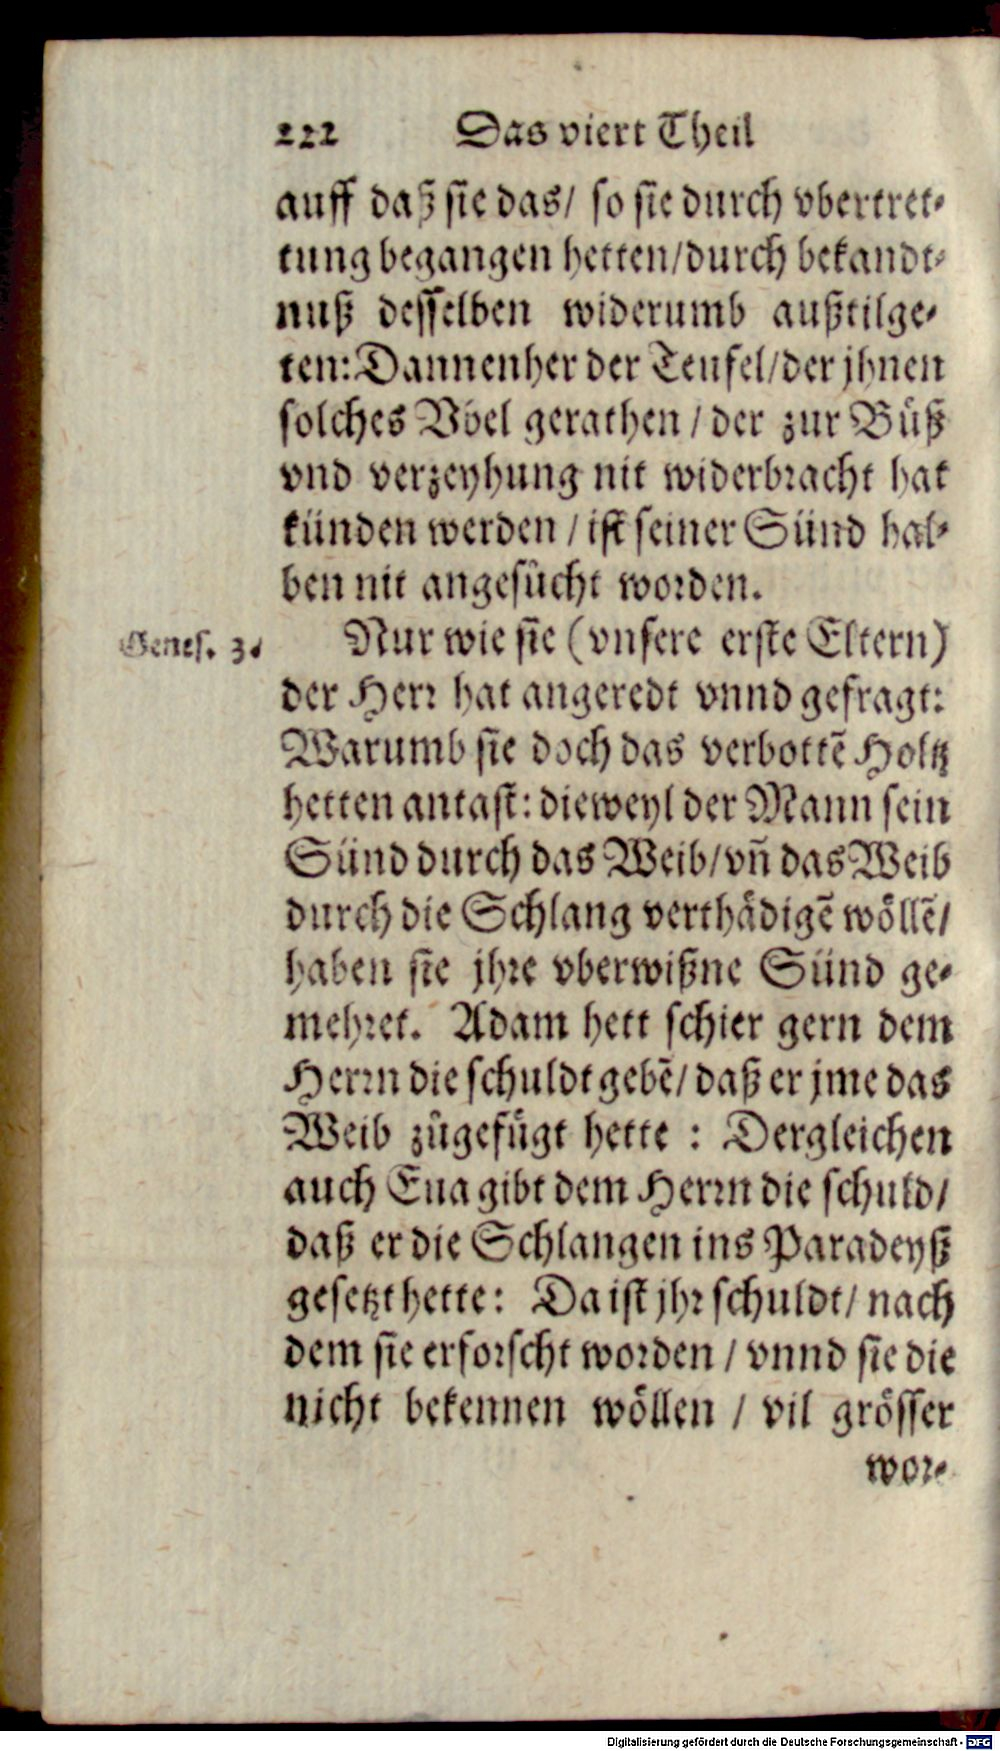 222 Das viert Theil
auff daß sie das/ so sie durch vbertret-
tung begangen hetten/durch bekandt-
nuß desselben widerumb außtilge-
ten: Dannenher der Teufel/der jhnen
solches Vbel gerathen / der zur Bůß
vnd verzeyhung nit widerbracht hat
künden werden / ist seiner Sünd hal-
ben nit angesůcht worden.
Genes. 3.
Nur wie sie (vnsere erste Eltern)
der Herr hat angeredt vnnd gefragt:
Warumb sie doch das verbottẽ Holtz
hetten antast: dieweyl der Mann sein
Sünd durch das Weib/vñ das Weib
durch die Schlang verthädigẽ wöllẽ/
haben sie jhre vberwißne Sünd ge-
mehret. Adam hett schier gern dem
Herrn die schuldt gebẽ/ daß er jme das
Weib zůgefügt hette : Dergleichen
auch Eua gibt dem Herrn die schuld/
daß er die Schlangen ins Paradeyß
gesetzt hette: Da ist jhr schuldt/ nach
dem sie erforscht worden / vnnd sie die
nicht bekennen wöllen / vil grösser
wor-
Digitalisierung gefördert durch die Deutsche Forschungsgemeinschaft - DFG